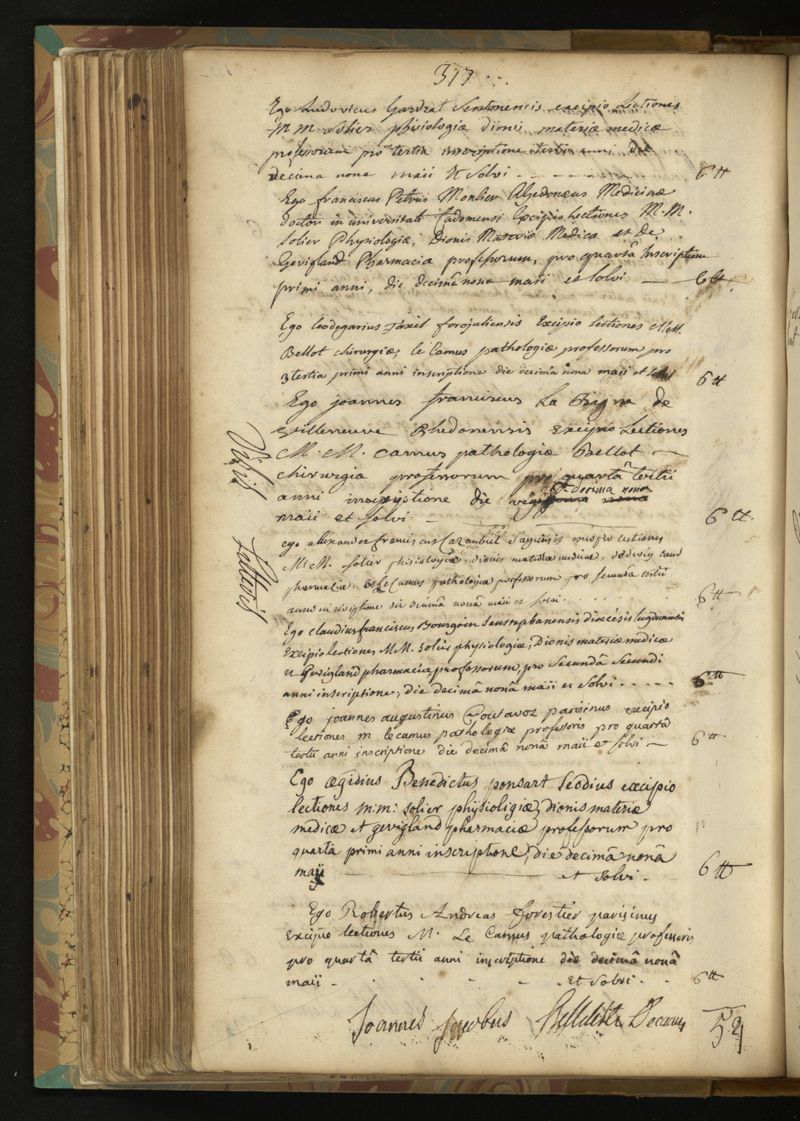 317
Ego Ludovicus Gardrat excipio Lectiones
M M Solier phisiologiæ dionis materiæ medicæ
professorum pro tertia inscriptione tertii anni die
decima nona maii et solvi 6 tt
Ego franciscus Petrus Monlien Medicinæ
doctor in universitate Excipio Lectiones M.M.
Solier Physiologiæ, Dionis Materiæ Medica et De
Gevigland Pharmacia professorum, pro quartâ Inscriptione
primi anni, die decimâ nona maii et solvi 6 tt.
Ego leodegarius Jaxil forojuliensis Excipio lectiones M.M.
Bellot chirurgiæ, le Camus pathologiæ professorum pro
3 tertia primi anni inscriptione die decimâ nona maii et solvi 6 tt
Ego joannes franciscus La Bigne de
villeneuve Rhedonensis Excipio Lectiones
M. M. camus pathologiæ Bellot
chirurgiæ professorum pro quartâ tertii
anni inscriptione die decima nona
maii et solvi 6 tt.
Visis
Lectoris
ego allexander franciscus excipio lectiones
M.M. Solier phisiologiæ, dionis materiæ medicæ,
pharmaciæ, et Le Camus pathologiæ professorum pro secundâ tertii
anni inscriptione die decimâ nonâ maii et solvi 6 tt
Ego claudius franciscus Bourgoin diœcesis lugdunensis
Excipio Lectiones M.M. solier physiologiæ, Dionis materiæ medicæ
et Gevigland pharmaciæ professorum, pro secundâ secundi
anni inscriptione, die decimâ nonâ maii et solvi 6 tt
Ego joannes augustinus Coutavoz parisinus excipio
lectiones m lecamus pathologiæ professoris pro quartâ
tertii anni inscriptione die decimâ nonâ maii et solvi 6 tt
Ego ægidius Benedictus ponsart Leodius excipio
lectiones m:m: solier physioligiæ, dionis materiæ
medicæ et gevigland pharmaciæ professorum pro
quarta primi anni inscriptione, die decimâ nonâ
maij et solvi 6 tt
Ego Robertus Andreas forestier parisinus
Excipio lectiones M. Le Camus pathologiæ professoris
pro quartâ tertii anni inscriptione die decimâ nonâ
maii et solvi 6 tt
Joannes Jacobus Belleteste Decanus 54